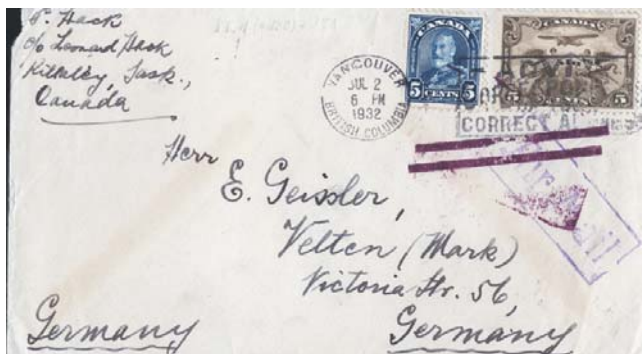 P. Hack
c/o Leonard Hack
Sask.,
Canada
CANADA
5 CENTS 5
CANADA
5 CENTS 5
VANCOUVER
JUL 2
6 PM
1932
BRITISH COLUMBIA
CORRECT
Air Mail
Herr
E. Geissler,
Velten (Mark)
Victoria Str. 56,
Germany
Germany